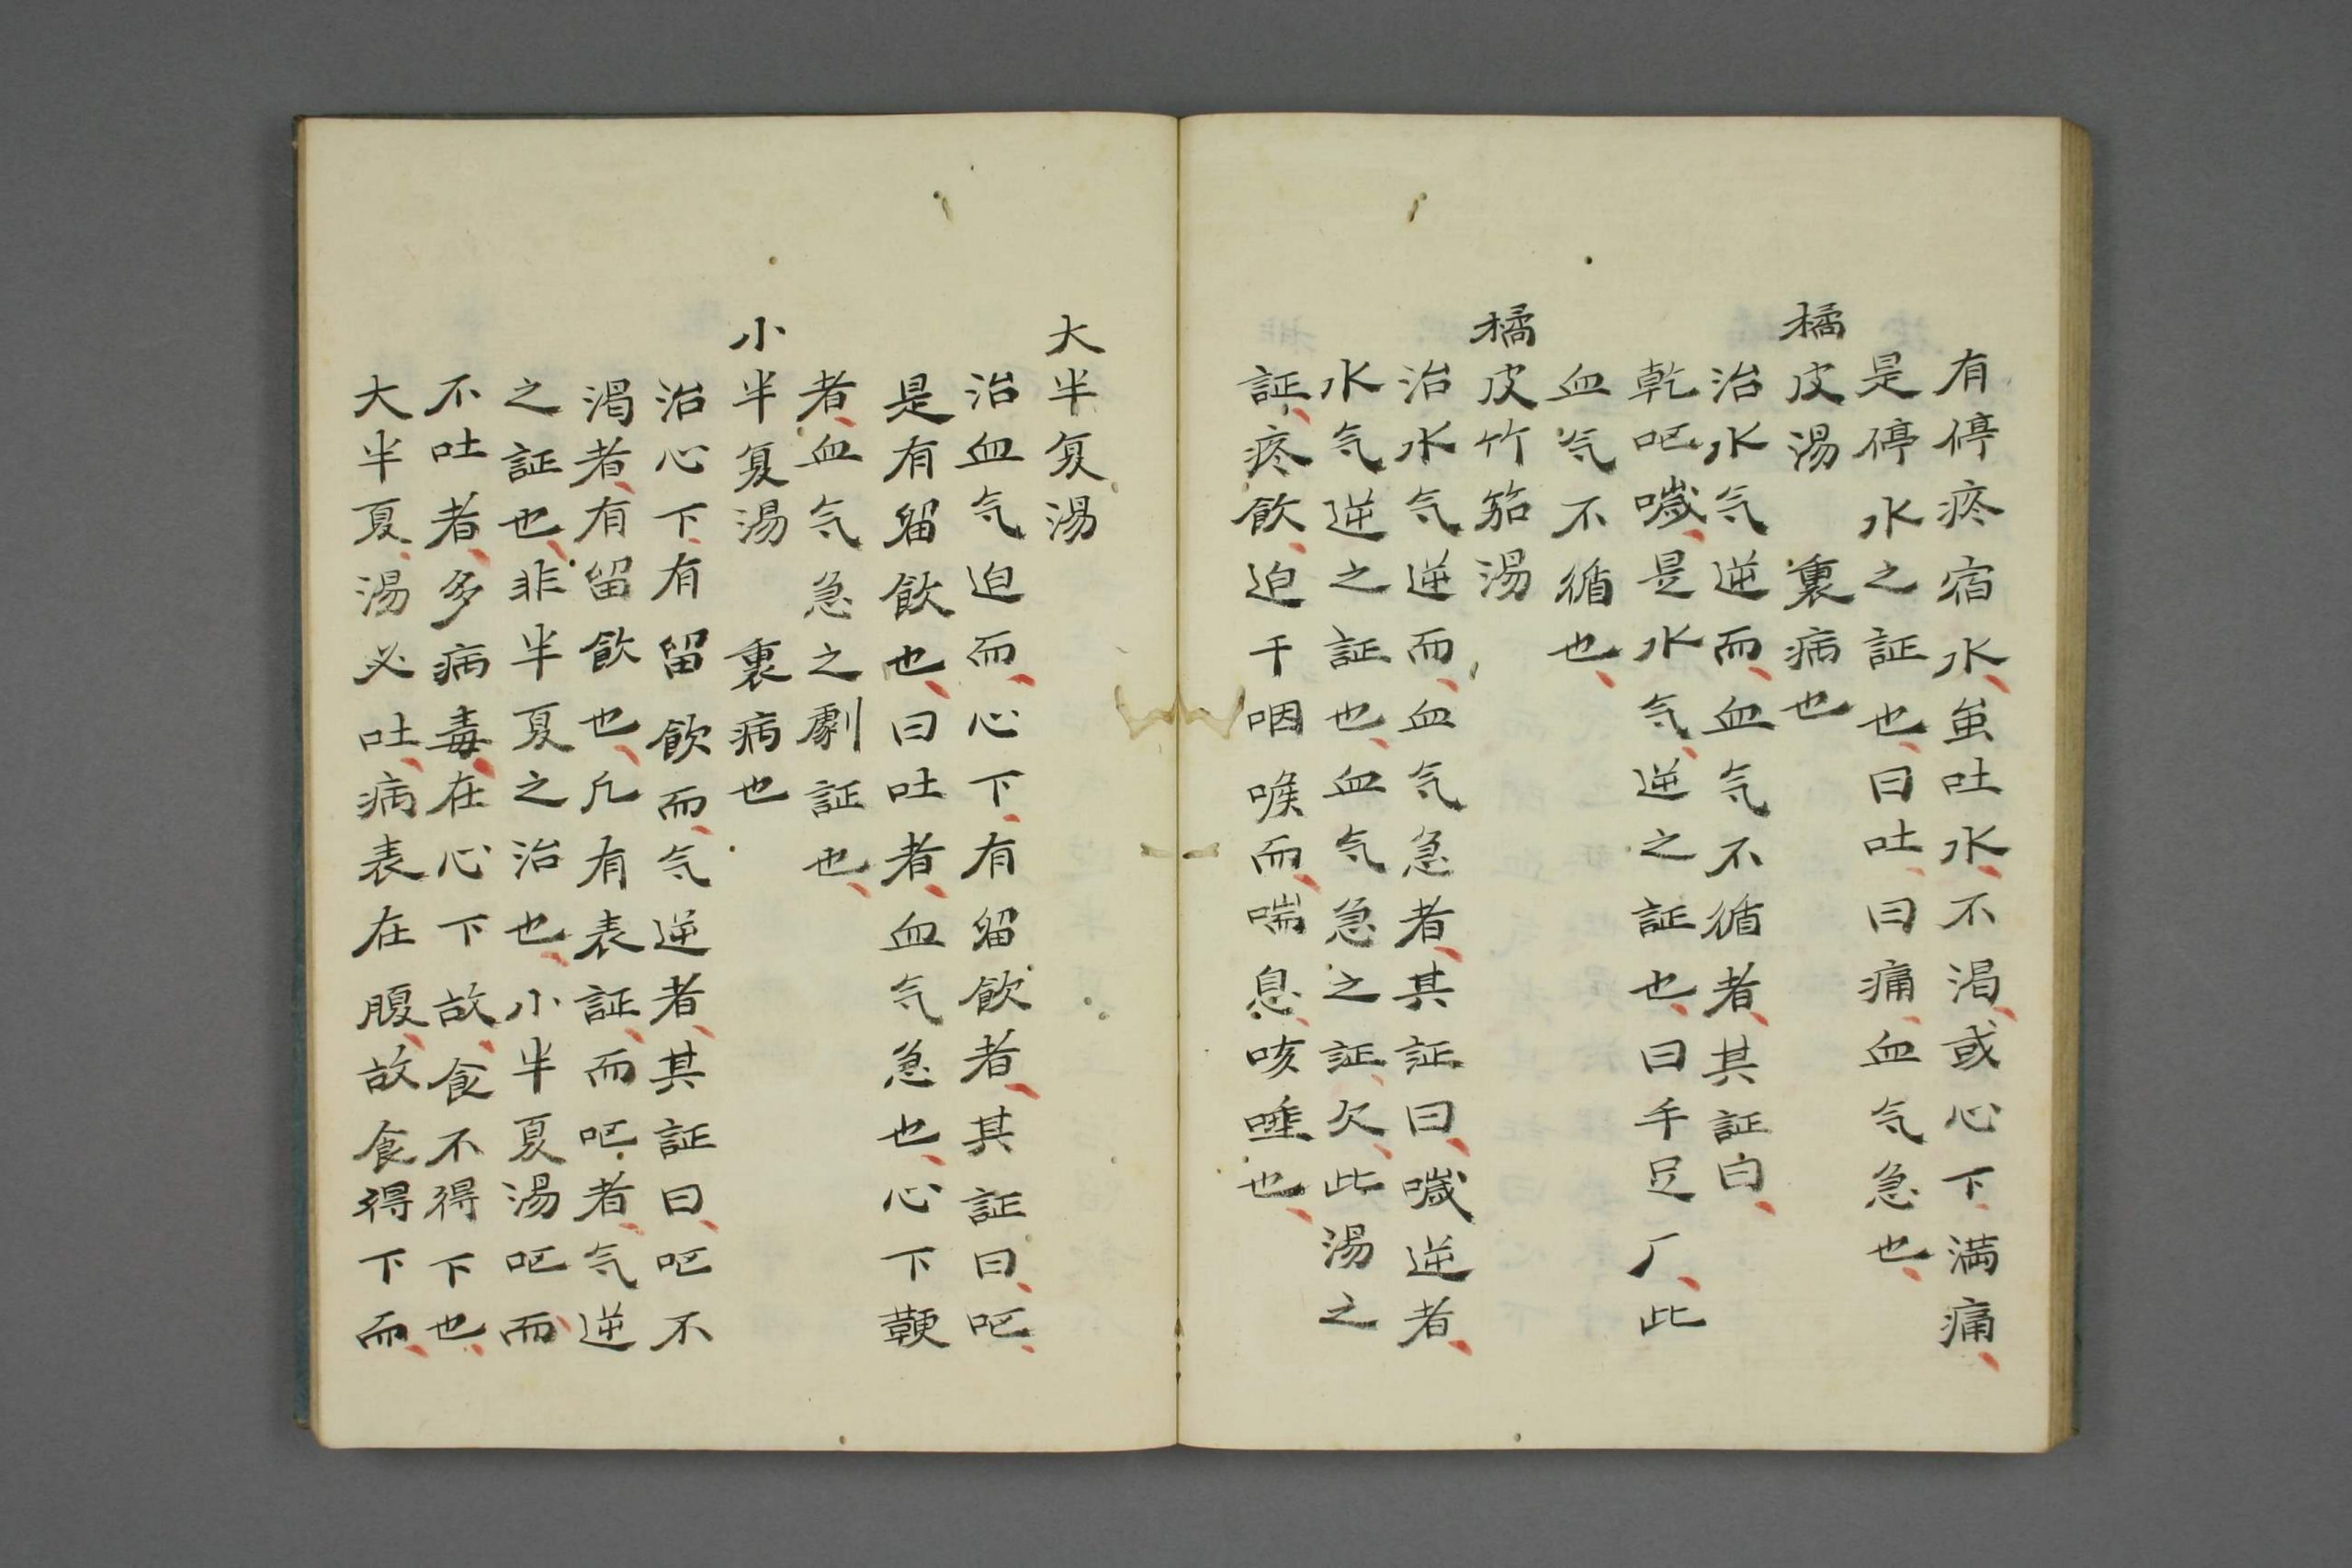 有停疼宿水虽吐水不渇或心下満痛
是停水之証也曰吐曰痛血气急也
橘皮湯　裏病也
治水气逆而血气不循者其証白
乾吧噦是水气逆之証也曰手足厂此
血气不循也
橘皮竹筎湯
治水气逆而血气急者其証曰噦逆者
水气逆之証也血气急之証欠此湯之
証疼飲迫干咽喉而喘息咳唾也
大半夏湯
治血气迫而心下有留飲者其証曰吧
是有留飲也曰吐者血气急也心下鞕
者血气急之劇証也
小半夏湯　裏病也
治心下有留飲而气逆者其証曰吧不
渇者有留飲也凡有表証而吧者气逆
之証也非半夏之治也小半夏湯吧而
不吐者多病毒在心下故食不得下也
大半夏湯必吐病表在腹故食得下而